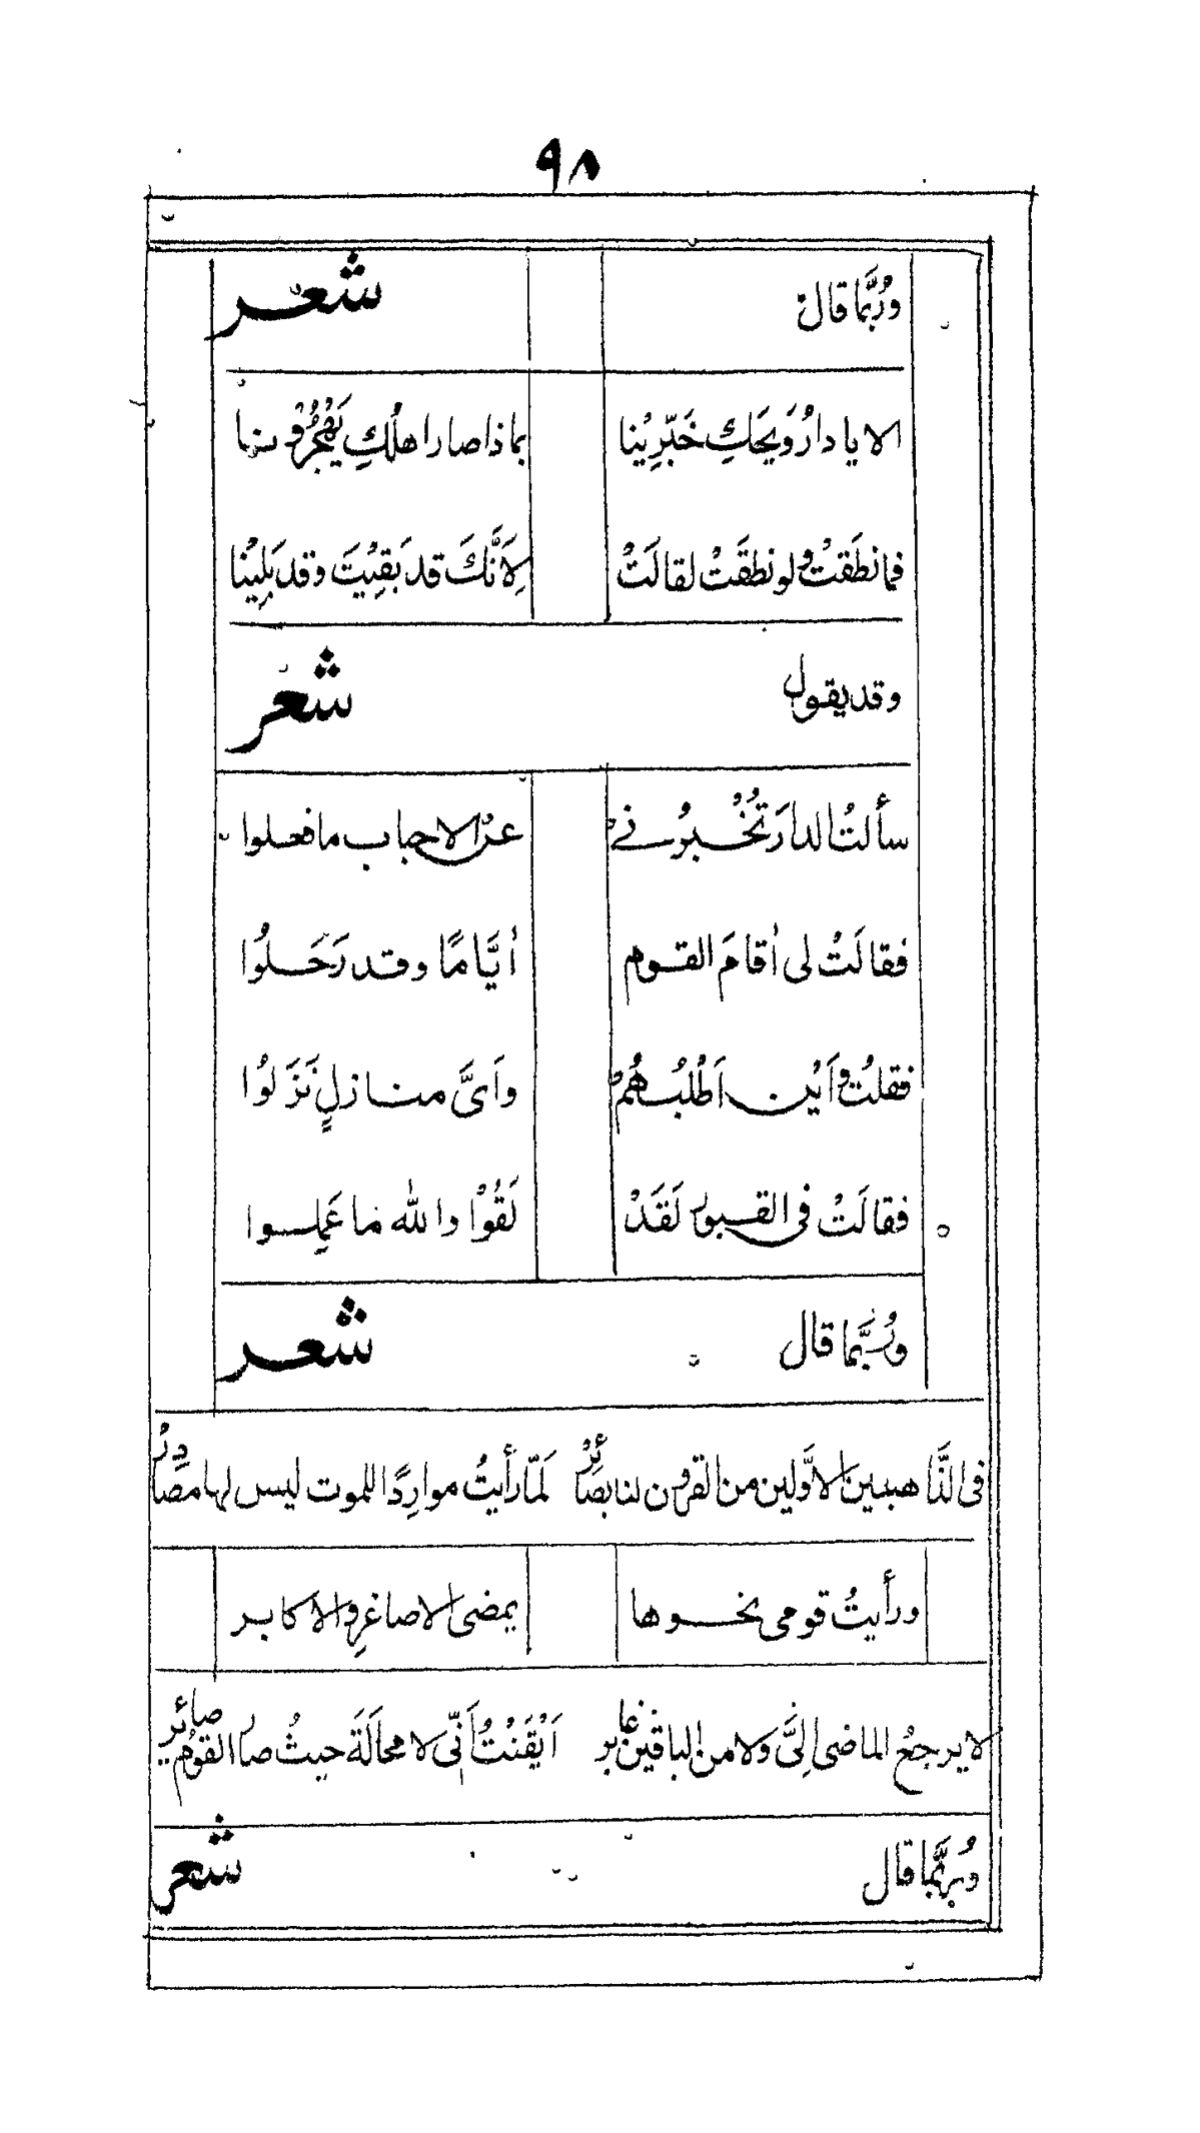 ٩٨
وَرُبَّمَا قال شعر
الا يا دارُ وَيحَكِ خَبِّرِيْنا بماذا صار اهلُكِ يَهْجُرُوْننا
فما نطَقتْ ولو نطَقَتْ لقالَتْ لِاَنَّكَ قد بَقِيْتَ وقد بَلِيْنا
وقد يقول شعر
سألتُ الدارَ تُخْبِرُنى عن الاحباب ما فعلوا
فقالَتْ لى أقامَ القوم أيَّامًا وقد رَحَلُوْا
فقلتُ وَاَيْن اَطْلُبُهُمْ وَاَىَّ منازلٍ نَزَلُوْا
فقالَتْ فى القبور لَقَدْ لَقُوْا والله ما عَمِلوا
وَرُبَّمَا قال شعر
فى الذَّاهبين الاوَّلين من القرون لنا بصَائرُ لَمّا رأَيتُ موارِدًا للموت ليس لها مصَادِرُ
ورأَيتُ قومى نحوها يمضى الاصاغرِ والاكابر
لا يرجعُ الماضى اِلىَّ ولا من الباقين غابر اَيْقَنْتُ اَنّى لا محالَةَ حيثُ صار القومُ صائر
وَرُبَّمَا قال شعر